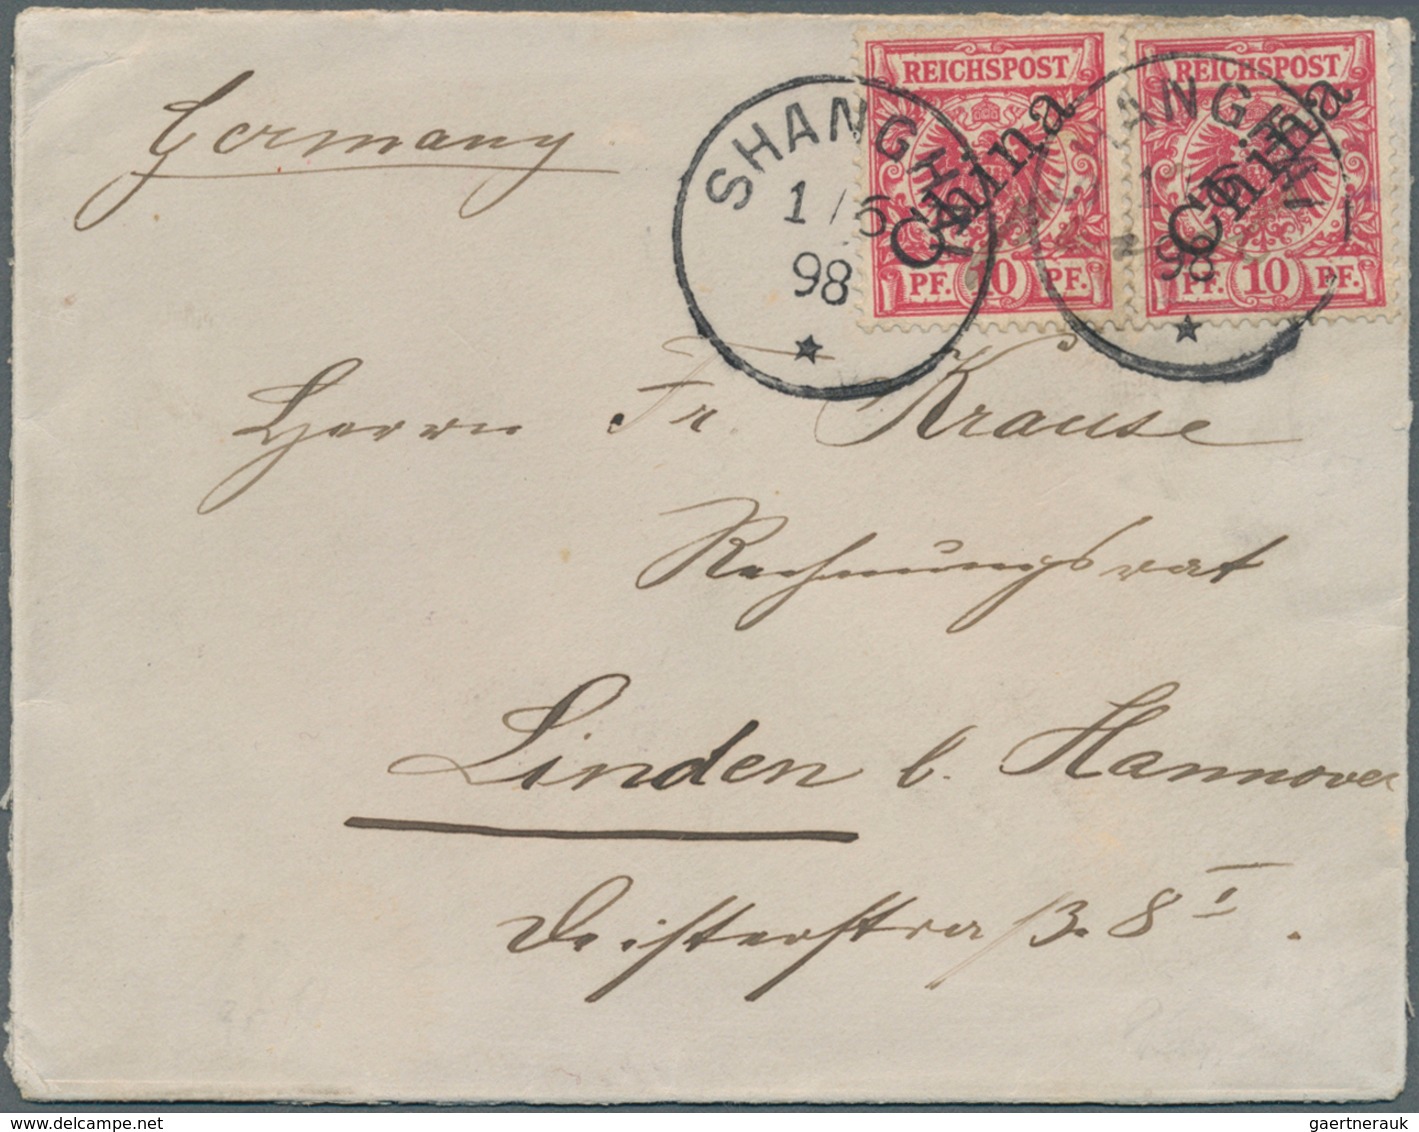 Germany
REICHSPOST
China
PF. 10 PF.
REICHSPOST
China
PF. 10 PF.
SHANGHAI
1/6
98
SHANGHAI
98
Herrn Fr. Krause
Rechnungsrat
Linden b. Hannover
Deisterstra 13. 8 I
gaertnerauk